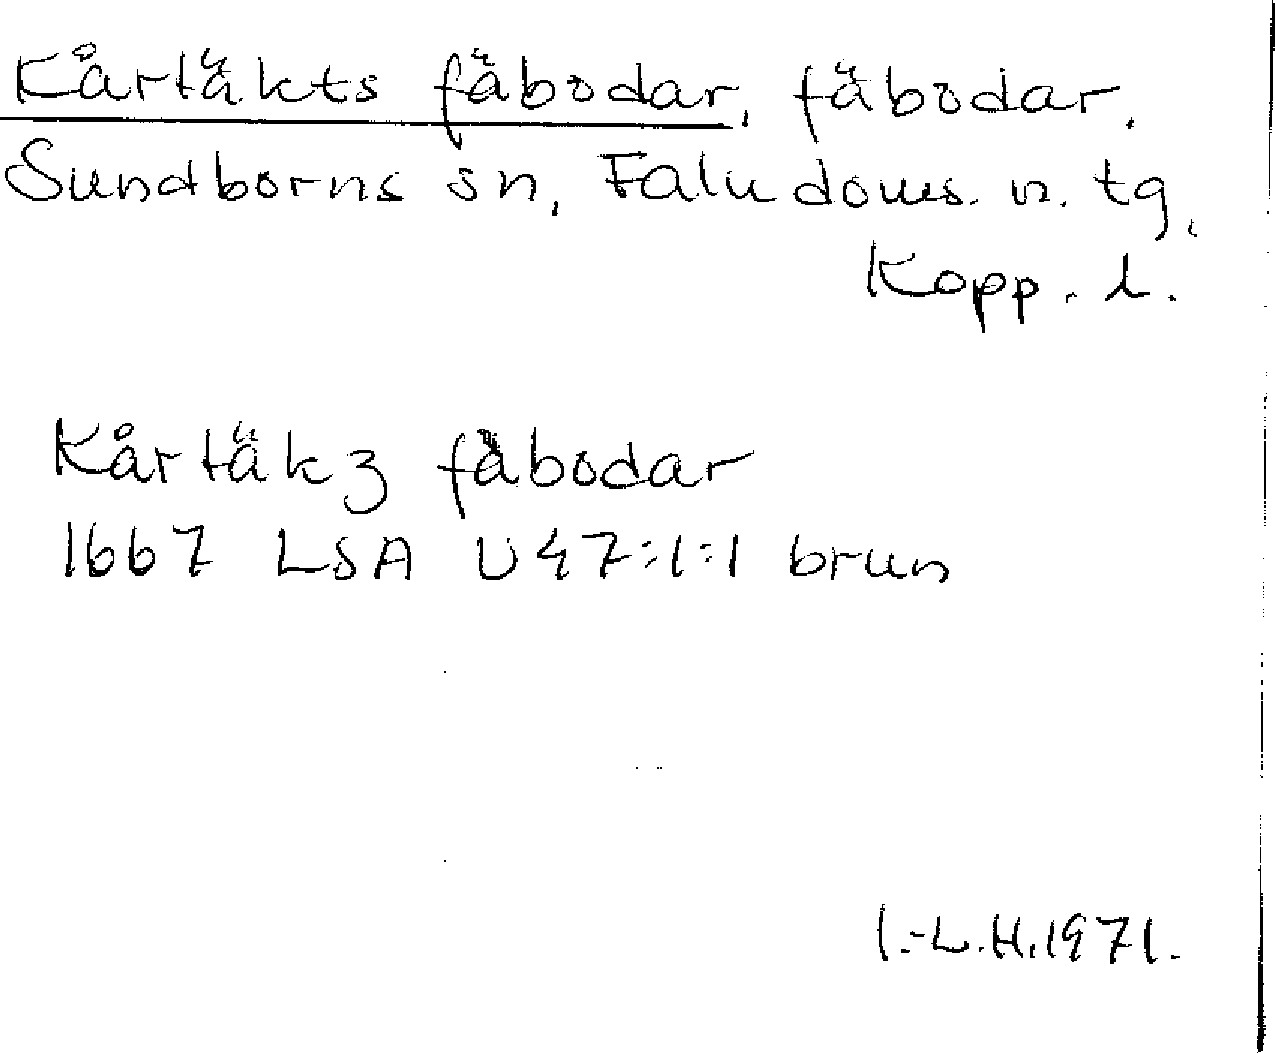 Kårtäkts fäbodar, fäbodar.
Sundborns sn, Falu doms. n. tg,
Kopp. l.
Kårtäkz fäbodar
1667 LSA U47:1:1 brun
I.-L.H.1971.